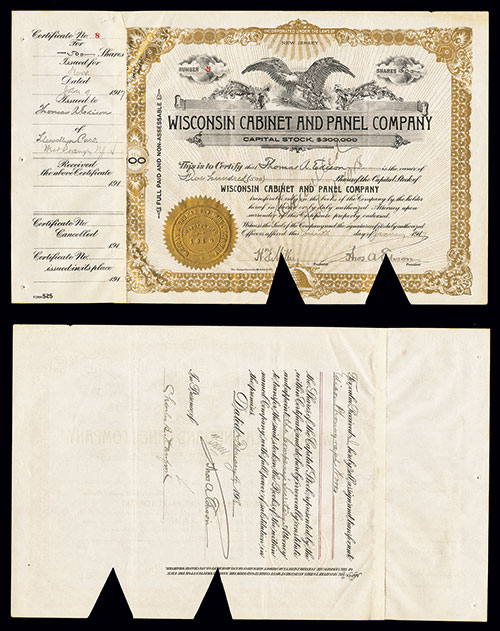 Certificate No. 8
For
500 Shares
Issued for
Stock
Dated
Jan 9 1917
Issued to
Thomas A Edison
of
Llewellyn Park
West Orange N.J.
Received
the above Certificate
191
Certificate No.
Cancelled
191
Certificate No.
issued in its place
191
FORM 525
INCORPORATED UNDER THE LAWS OF
NEW JERSEY
NUMBER
8
SHARES
WISCONSIN CABINET AND PANEL COMPANY
CAPITAL STOCK, $300,000
FULL PAID AND NON-ASSESSABLE
This is to Certify that Thomas A. Edison is the owner of
Five hundred (500) Shares of the Capital Stock of
WISCONSIN CABINET AND PANEL COMPANY
transferable only on the books of the Company by the holder
hereof in person or by duly authorized Attorney upon
surrender of this Certificate properly endorsed.
Witness the Seal of the Company and the signatures of its duly authorized
Officers affixed this ninth day of January 1917
Thos A Edison
President
For value Received hereby sell, assign and transfer unto
Shares of the Capital Stock represented by the
within Certificate, and do hereby irrevocably constitute
and appoint Attorney
to transfer the said stock on the Books of the within
named Company with full power of substitution in
the premises.
Dated 191
In Presence of
Thos A Edison